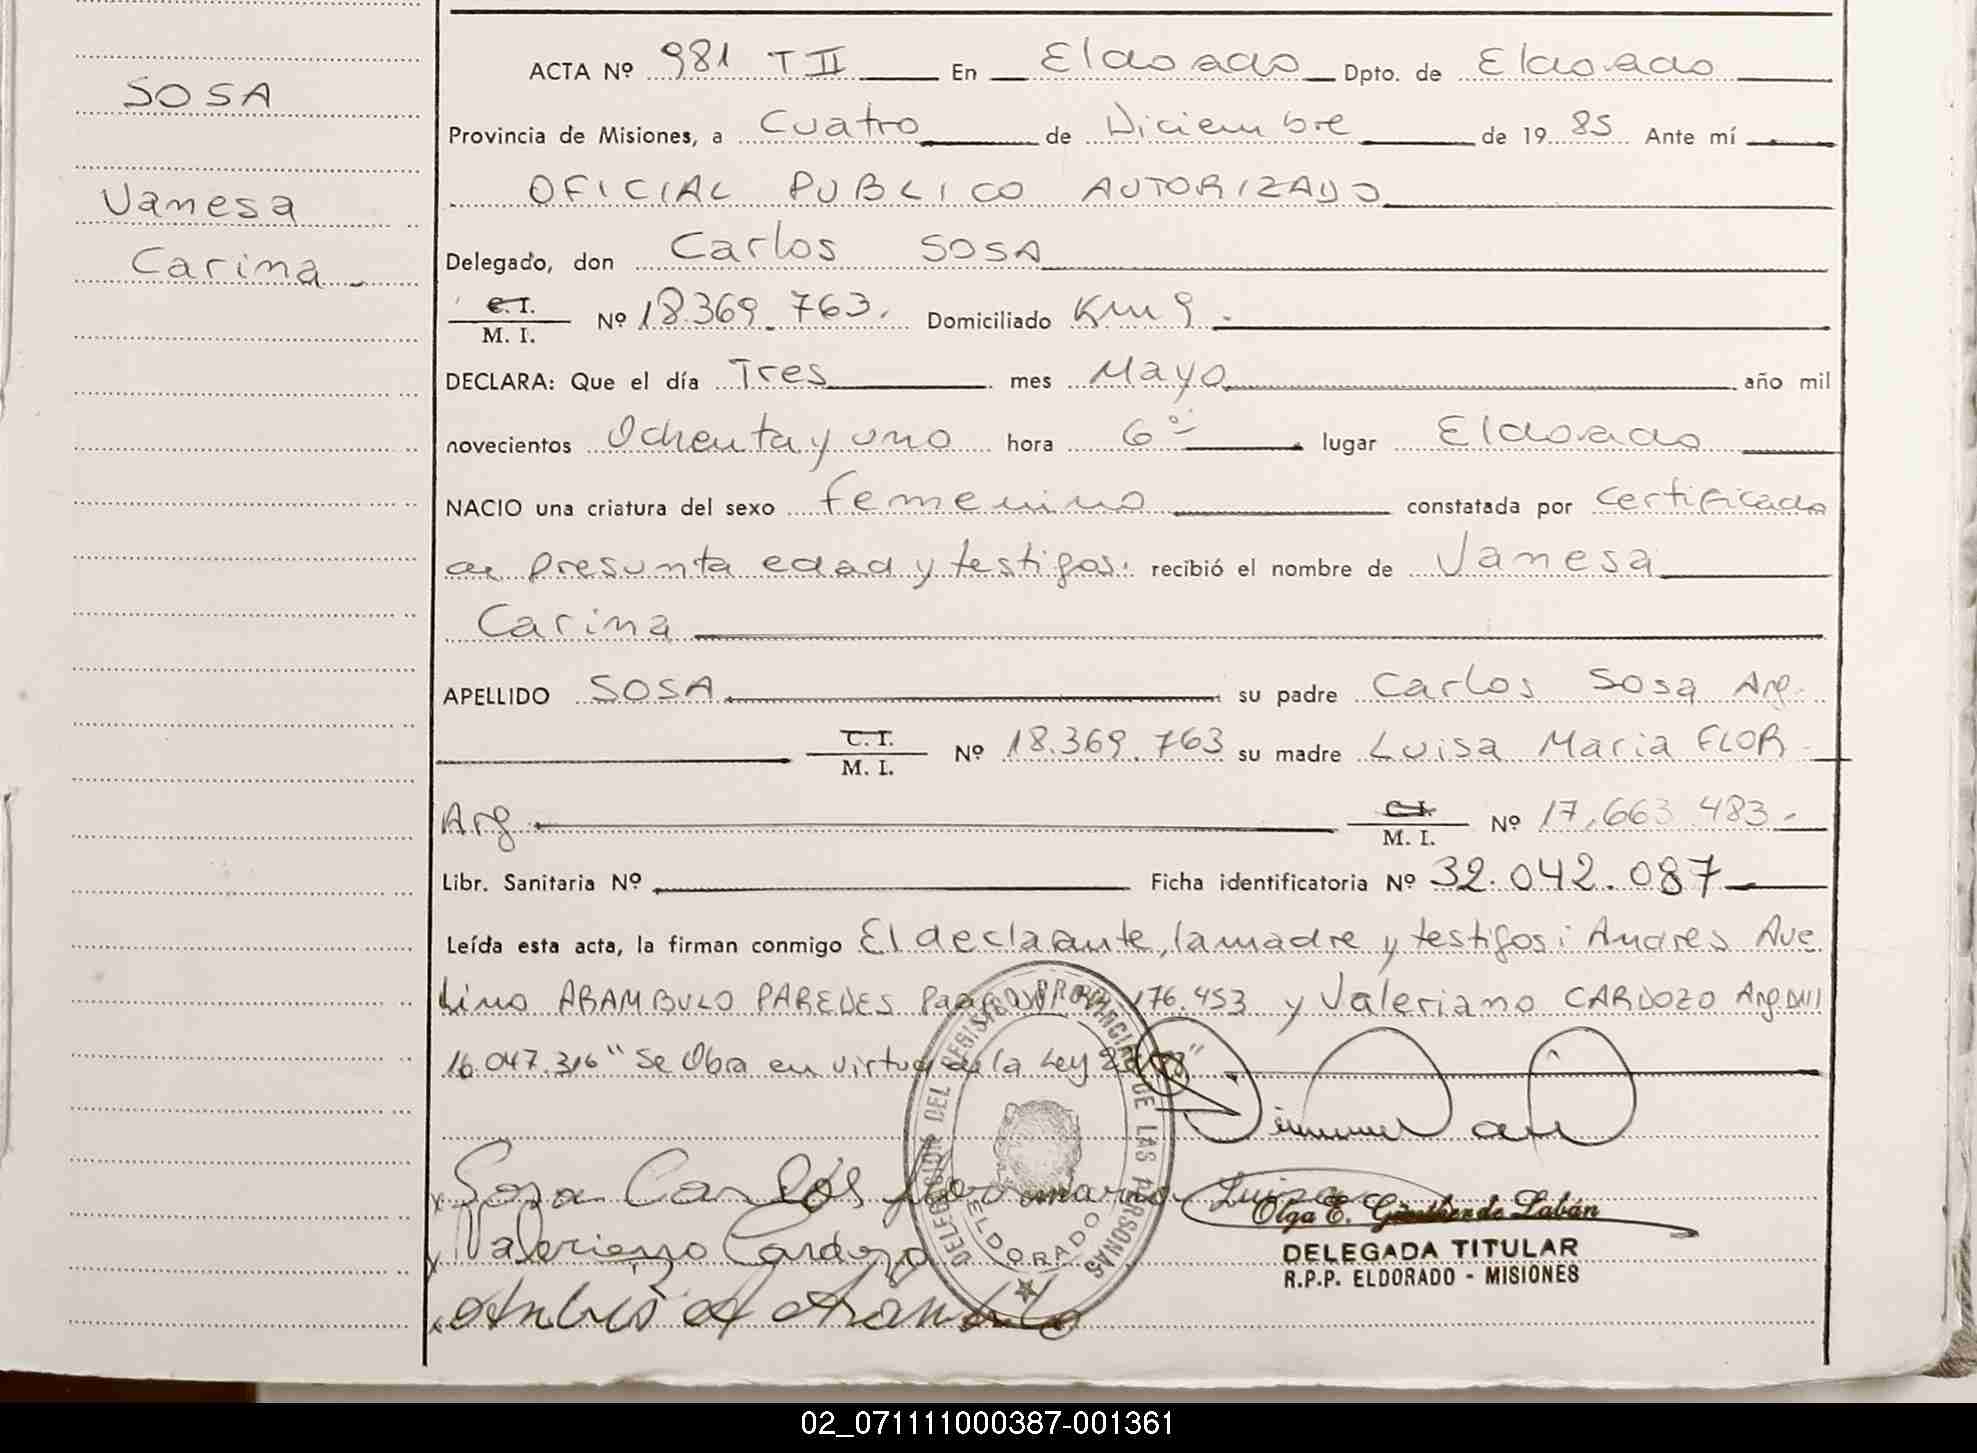 SOSA
Vanesa
Carina
ACTA Nº 981 T II En Eldorado Dpto. de Eldorado
Provincia de Misiones, a Cuatro de Diciembre de 19 85 Ante mí
OFICIAL PUBLICO AUTORIZADO
Delegado, don Carlos SOSA
C. I.
M. I. Nº 18.369.763. Domiciliado Km 9.
DECLARA: Que el día Tres mes Mayo año mil
novecientos Ochenta y uno hora 6 lugar Eldorado
NACIO una criatura del sexo femenino constatada por Certificado
de presunta edad y testigos: recibió el nombre de Vanesa
Carina
APELLIDO SOSA su padre Carlos Sosa Arg.
C. I.
M. I. Nº 18.369.763 su madre Luisa Maria FLOR
Arg C. I.
M. I. Nº 17.663.483.-
Libr. Sanitaria Nº Ficha identificatoria Nº 32.042.087
Leída esta acta, la firman conmigo El declarante, la madre y testigos: Andres Ave
lino ARAMBULO PAREDES 176.453 y Valeriano CARDOZO Arg DNI
16.047.316 "Se Obra en virtud de la Ley
Sosa Carlos flor maria Luisa
Valeriano Cardozo
Andrés A Arambulo
DELEGACIÓN DEL REGISTRO PROVINCIAL DE LAS PERSONAS
ELDORADO
Olga E. Günther de Labán
DELEGADA TITULAR
R.P.P. ELDORADO - MISIONES
02_071111000387-001361